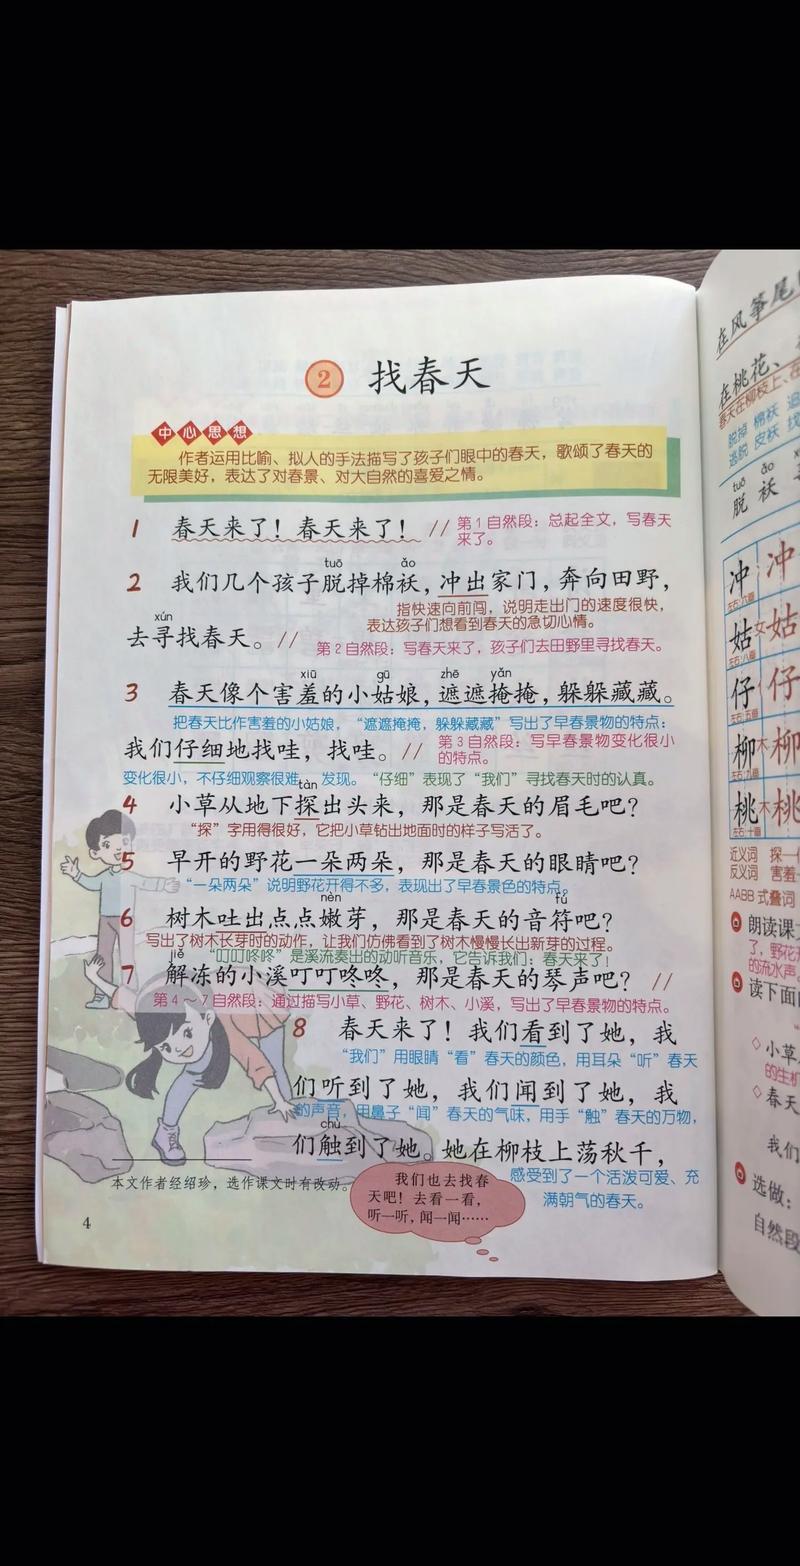 2 找春天
中心思想
作者运用比喻、拟人的手法描写了孩子们眼中的春天，歌颂了春天的
无限美好，表达了对春景、对大自然的喜爱之情。
1 春天来了！春天来了！// 第1自然段：总起全文，写春天
来了。
tuō ǎo
2 我们几个孩子脱掉棉袄，冲出家门，奔向田野，
指快速向前闯，说明走出门的速度很快，
表达孩子们想看到春天的急切心情。
xún
去寻找春天。//
第2自然段：写春天来了，孩子们去田野里寻找春天。
xiū gū zhē yǎn
3 春天像个害羞的小姑娘，遮遮掩掩，躲躲藏藏。
把春天比作害羞的小姑娘，“遮遮掩掩，躲躲藏藏”写出了早春景物的特点：
我们仔细地找哇，找哇。// 第3自然段：写早春景物变化很小
的特点。
变化很小，不仔细观察很难发现。“仔细”表现了“我们”寻找春天时的认真。
tàn
4 小草从地下探出头来，那是春天的眉毛吧？
“探”字用得很好，它把小草钻出地面时的样子写活了。
5 早开的野花一朵两朵，那是春天的眼睛吧？
“一朵两朵”说明野花开得不多，表现出了早春景色的特点。
nèn fú
6 树木吐出点点嫩芽，那是春天的音符吧？
写出了树木长芽时的动作，让我们仿佛看到了树木慢慢长出新芽的过程。
jiě “叮叮咚咚”是溪流奏出的动听音乐，它告诉我们：春天来了！
7 解冻的小溪叮叮咚咚，那是春天的琴声吧？//
第4～7自然段：通过描写小草、野花、树木、小溪，写出了早春景物的特点。
8 春天来了！我们看到了她，我
“我们”用眼睛“看”春天的颜色，用耳朵“听”春天
们听到了她，我们闻到了她，我
的声音，用鼻子“闻”春天的气味，用手“触”春天的万物，
chù
们触到了她。她在柳枝上荡秋千，
感受到了一个活泼可爱、充
满朝气的春天。
本文作者经绍珍，选作课文时有改动。
我们也去找春
天吧！去看一看，
听一听，闻一闻……
4
在风筝尾
在桃花、
春天在柳枝上、在
脱掉 棉袄
逃脱 皮袄
tuō ǎo
脱 袄
冲 冲
姑 女 姑
仔 仔
柳 木 柳
桃 木 桃
近义词 探一
反义词 害羞
AABB 式叠词
朗读课
了，野花
的流水声
读下面
小草
的生机
春天
我们
选做：
自然段